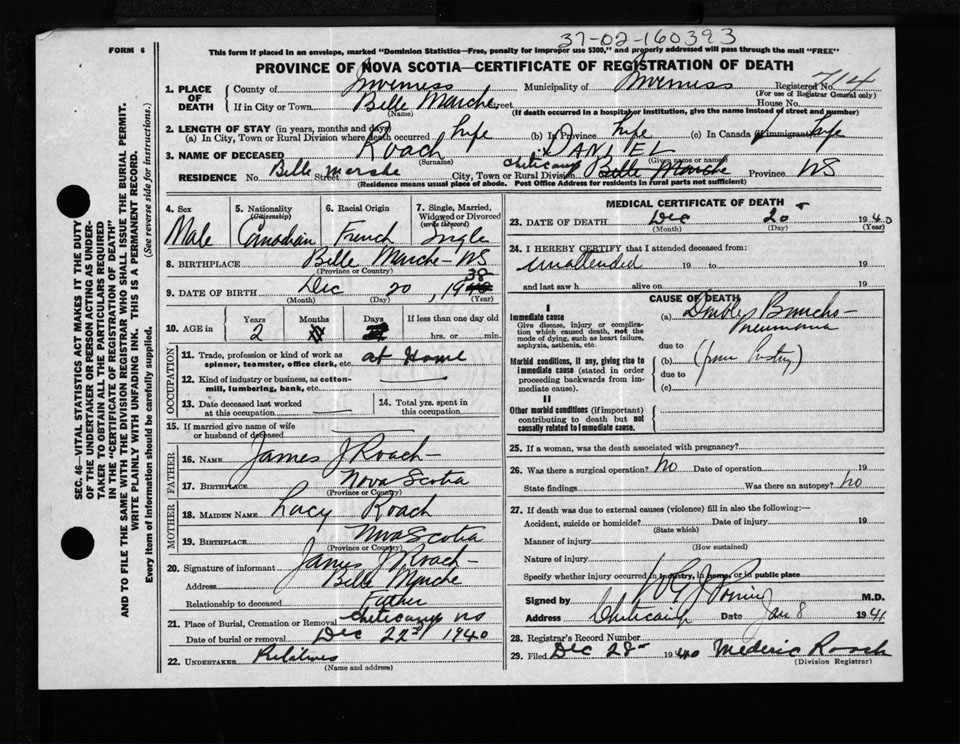 37-02-160393
FORM 6
This form if placed in an envelope, marked "Dominion Statistics—Free, penalty for improper use $300," and properly addressed will pass through the mail "FREE"
PROVINCE OF NOVA SCOTIA—CERTIFICATE OF REGISTRATION OF DEATH
SEC. 46—VITAL STATISTICS ACT MAKES IT THE DUTY
OF THE UNDERTAKER OR PERSON ACTING AS UNDER-
TAKER TO OBTAIN ALL THE PARTICULARS REQUIRED
IN THE "CERTIFICATE OF REGISTRATION OF DEATH"
AND TO FILE THE SAME WITH THE DIVISION REGISTRAR WHO SHALL ISSUE THE BURIAL PERMIT.
WRITE PLAINLY WITH UNFADING INK. THIS IS A PERMANENT RECORD.
Every item of Information should be carefully supplied. (See reverse side for instructions.)
1. PLACE OF DEATH County of Inverness Municipality of Inverness Registered No. 714
(For use of Registrar General only)
If in City or Town Belle Marche Street House No.
(Name) (If death occurred in a hospital or institution, give the name instead of street and number)
2. LENGTH OF STAY (in years, months and days)
(a) In City, Town or Rural Division where death occurred Life (b) In Province Life (c) In Canada if immigrant Life
3. NAME OF DECEASED Roach DANIEL
(Surname) (Given name or names)
RESIDENCE No. Belle Marshe Street City, Town or Rural Division Cheticamp Belle Marche Province NS
(Residence means usual place of abode. Post Office Address for residents in rural parts not sufficient)
4. Sex 5. Nationality (Citizenship) 6. Racial Origin 7. Single, Married, Widowed or Divorced (write the word)
Male Canadian French Single
8. BIRTHPLACE Belle Marche NS
(Province or Country)
9. DATE OF BIRTH Dec 20, 1940 38
(Month) (Day) (Year)
10. AGE in Years Months Days If less than one day old
2 hrs. or min.
OCCUPATION
11. Trade, profession or kind of work as spinner, teamster, office clerk, etc. at Home
12. Kind of industry or business, as cotton-mill, lumbering, bank, etc.
13. Date deceased last worked at this occupation 14. Total yrs. spent in this occupation
15. If married give name of wife or husband of deceased
FATHER
16. NAME James J Roach
17. BIRTHPLACE Nova Scotia
(Province or Country)
MOTHER
18. MAIDEN NAME Lacy Roach
19. BIRTHPLACE Nova Scotia
(Province or Country)
20. Signature of informant James J Roach
Address Belle Marche
Relationship to deceased Father
21. Place of Burial, Cremation or Removal Cheticamp NS
Date of burial or removal Dec 22 1940
22. UNDERTAKER Relatives
(Name and address)
MEDICAL CERTIFICATE OF DEATH
23. DATE OF DEATH Dec 20 1940
(Month) (Day) (Year)
24. I HEREBY CERTIFY that I attended deceased from:
Unattended 19 to 19
and last saw h alive on 19
CAUSE OF DEATH
I
Immediate cause
Give disease, injury or complication which caused death, not the mode of dying, such as heart failure, asphyxia, asthenia, etc.
(a) Double Broncho-
pneumonia
due to
Morbid conditions, if any, giving rise to immediate cause (stated in order proceeding backwards from immediate cause).
(b)
due to
(c)
II
Other morbid conditions (if important) contributing to death but not causally related to immediate cause.
25. If a woman, was the death associated with pregnancy?
26. Was there a surgical operation? No Date of operation 19
State findings Was there an autopsy? No
27. If death was due to external causes (violence) fill in also the following:—
Accident, suicide or homicide? Date of injury 19
(State which)
Manner of injury
(How sustained)
Nature of injury
Specify whether injury occurred in industry, in home, or in public place
Signed by M.D.
Address Cheticamp Date Jan 8 1941
28. Registrar's Record Number
29. Filed Dec 28 1940 Mederic Roach
(Division Registrar)